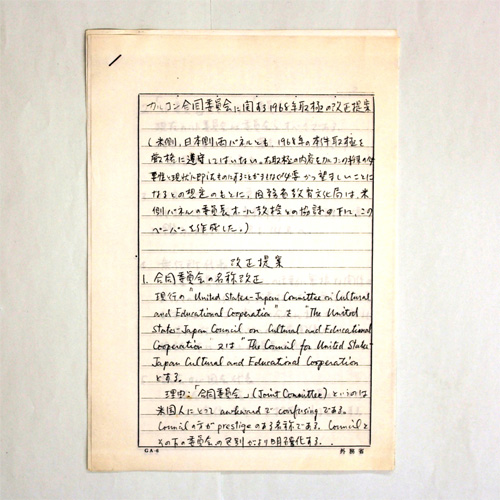 カルコン合同委員会に関する1968年取極の改正提案
(米側、日本側両パネルとも、1968年の本件取極を
厳格に遵守してはいない。右取極の内容をカルコンの
性と現状に即したものにすることが
なるとの想定のもとに、国務省教育文化局は、米
側パネルの委員長ホール教授との協議の下に、この
ペーパーを作成した。)
改正提案
1. 合同委員会の名称改正
現行の "United States-Japan Committee on Cultural
and Educational Cooperation" を "The United
States-Japan Council on Cultural and Educational
Cooperation" 又は "The Council for United States-
Japan Cultural and Educational Cooperation
とする。
理由:「合同委員会」(Joint Committee) というのは
米国人にとって awkward で confusing である。
Council の方が prestige のある名称である。Council と
その下の委員会の区別がより明確化する。
GA-6
外務省